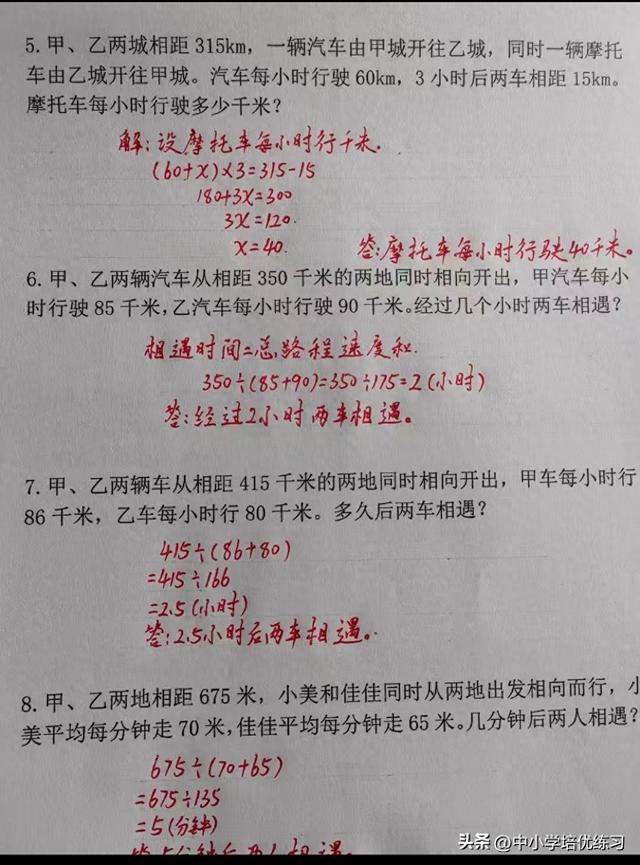 5. 甲、乙两城相距 315km，一辆汽车由甲城开往乙城，同时一辆摩托
车由乙城开往甲城。汽车每小时行驶 60km，3 小时后两车相距 15km。
摩托车每小时行驶多少千米？
解：设摩托车每小时行千米.
(60+x)×3=315-15
180+3x=300
3x=120.
x=40.
答：摩托车每小时行驶40千米。
6. 甲、乙两辆汽车从相距 350 千米的两地同时相向开出，甲汽车每小
时行驶 85 千米，乙汽车每小时行驶 90 千米。经过几个小时两车相遇？
相遇时间=总路程速度和.
350÷(85+90)=350÷175=2(小时)
答：经过2小时两车相遇。
7. 甲、乙两辆车从相距 415 千米的两地同时相向开出，甲车每小时行
86 千米，乙车每小时行 80 千米。多久后两车相遇？
415÷(86+80)
=415÷166
=2.5(小时)
答：2.5小时后两车相遇。
8. 甲、乙两地相距 675 米，小美和佳佳同时从两地出发相向而行，小
美平均每分钟走 70 米，佳佳平均每分钟走 65 米。几分钟后两人相遇？
675÷(70+65)
=675÷135
=5(分钟)
答：5分钟后两人相遇.
头条 @中小学培优练习